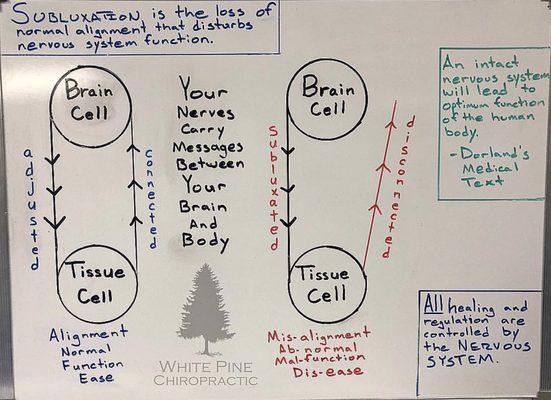 SUBLUXATION is the loss of
normal alignment that disturbs
nervous system function.
Brain
Cell
adjusted
connected
Tissue
Cell
Alignment
Normal
Function
Ease
Your
Nerves
Carry
Messages
Between
Your
Brain
And
Body
WHITE PINE
CHIROPRACTIC
Brain
Cell
Subluxated
disconnected
Tissue
Cell
Mis-alignment
Ab-normal
Mal-function
Dis-ease
An intact
nervous system
will lead to
optimum function
of the human
body.
-Dorland's
Medical
Text
All healing and
regulation are
controlled by
the NERVOUS
SYSTEM.